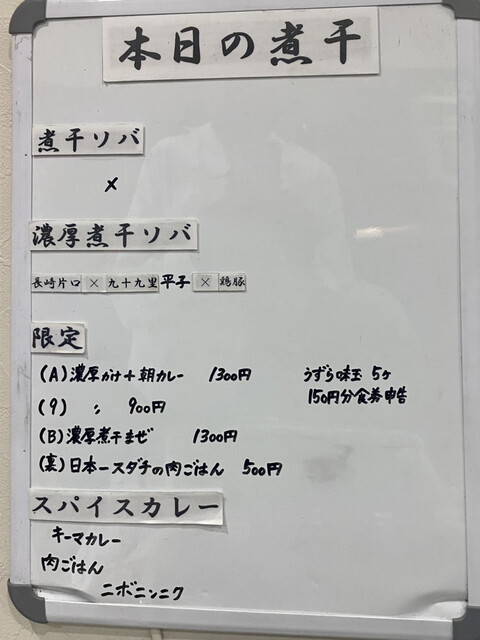 本日の煮干
煮干ソバ
×
濃厚煮干ソバ
長崎片口 × 九十九里 平子 × 鶏豚
限定
(A) 濃厚かけ+朝カレー 1300円
うずら味玉 5ヶ
150円分食券申告
(9) 〃 900円
(B) 濃厚煮干まぜ 1300円
(裏) 日本一スダチの肉ごはん 500円
スパイスカレー
キーマカレー
肉ごはん
ニボニンニク